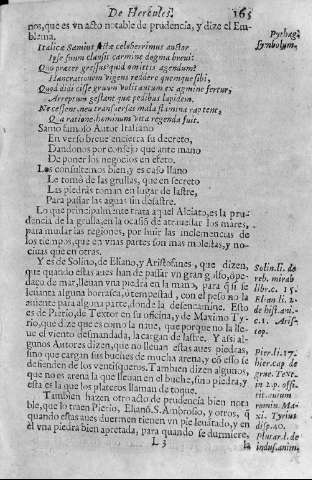 De Hercules. 165
nos, que es vn acto notable de prudencia, y dize el Em-
blema.
Pythag.
symbolum.
Italicæ Samius sectæ celeberrimus auctor
Ipse suum clausit carmine dogma breui:
Quo præter gressus? quid agis? quid omittis agendum?
Hanc rationem vigens reddere quemque sibi,
Quod didicisse gruum volitantum ex agmine fertur,
Arreptum gestant quæ pedibus lapidem.
Ne cessent, neu transuersas mala flamina raptent,
Qua ratione hominum vita regenda fuit.
Samo famoso Autor Italiano
En verso breue encierra su decreto,
Dandonos por consejo que ante mano
De poner los negocios en efeto.
Los consultemos bien, y es caso llano
Le tomò de las grullas, que en secreto
Las piedras toman en lugar de lastre,
Para passar las aguas sin desastre.
Lo que principalmente trata aquel Alciato, es la pru-
dencia de la grulla, en la ocasiõ de atrauessar los mares,
para mudar las regiones, por huir las inclemencias de
los tiempos, que en vnas partes son mas molestas, y no-
ciuas que en otras.
Y es de Solino, de Eliano, y Aristofanes, que dizen,
que quando estas aues han de passar vn gran golfo, ò pe-
daço de mar, lleuan vna piedra en la mano, para q̃ si se
leuanta alguna borrasca, ò tempestad, con el peso no la
auiente para alguna parte, donde la desencamine. Esto
es de Pierio, de Textor en su oficina, y de Maximo Ty-
rio, que dize que es como la naue, que porque no la lle-
ue el viento desmandada, la cargan de lastre. Y assi al-
gunos Autores dizen, que no lleuan estas aues piedras,
sino que cargan sus buches de mucha arena, y cõ esso se
defienden de los ventisqueros. Tambien dizen algunos,
que no es arena la que lleuan en el buche, sino piedra, y
esta es la que los plateros llaman de toque.
Tambien hazen otro acto de prudencia bien nota
ble, que lo traen Pierio, Eliano, S. Ambrosio, y otros, q̃
quando estas aues duermen tienen vn pie leuãtado, y en
èl vna piedra bien apretada, para quando se durmiere,
L 3 la
Solin. li. de
reb. mirab
lib. r. c. 15.
Elian. li. 2.
de hist. ani.
c. 1. Aris-
top.
Pier. li. 17.
hier. cap. de
grue. Text.
in 2. p. offi-
Maxi. Tyrius
disp. 40.
Plutar. l. de
indus. anim.